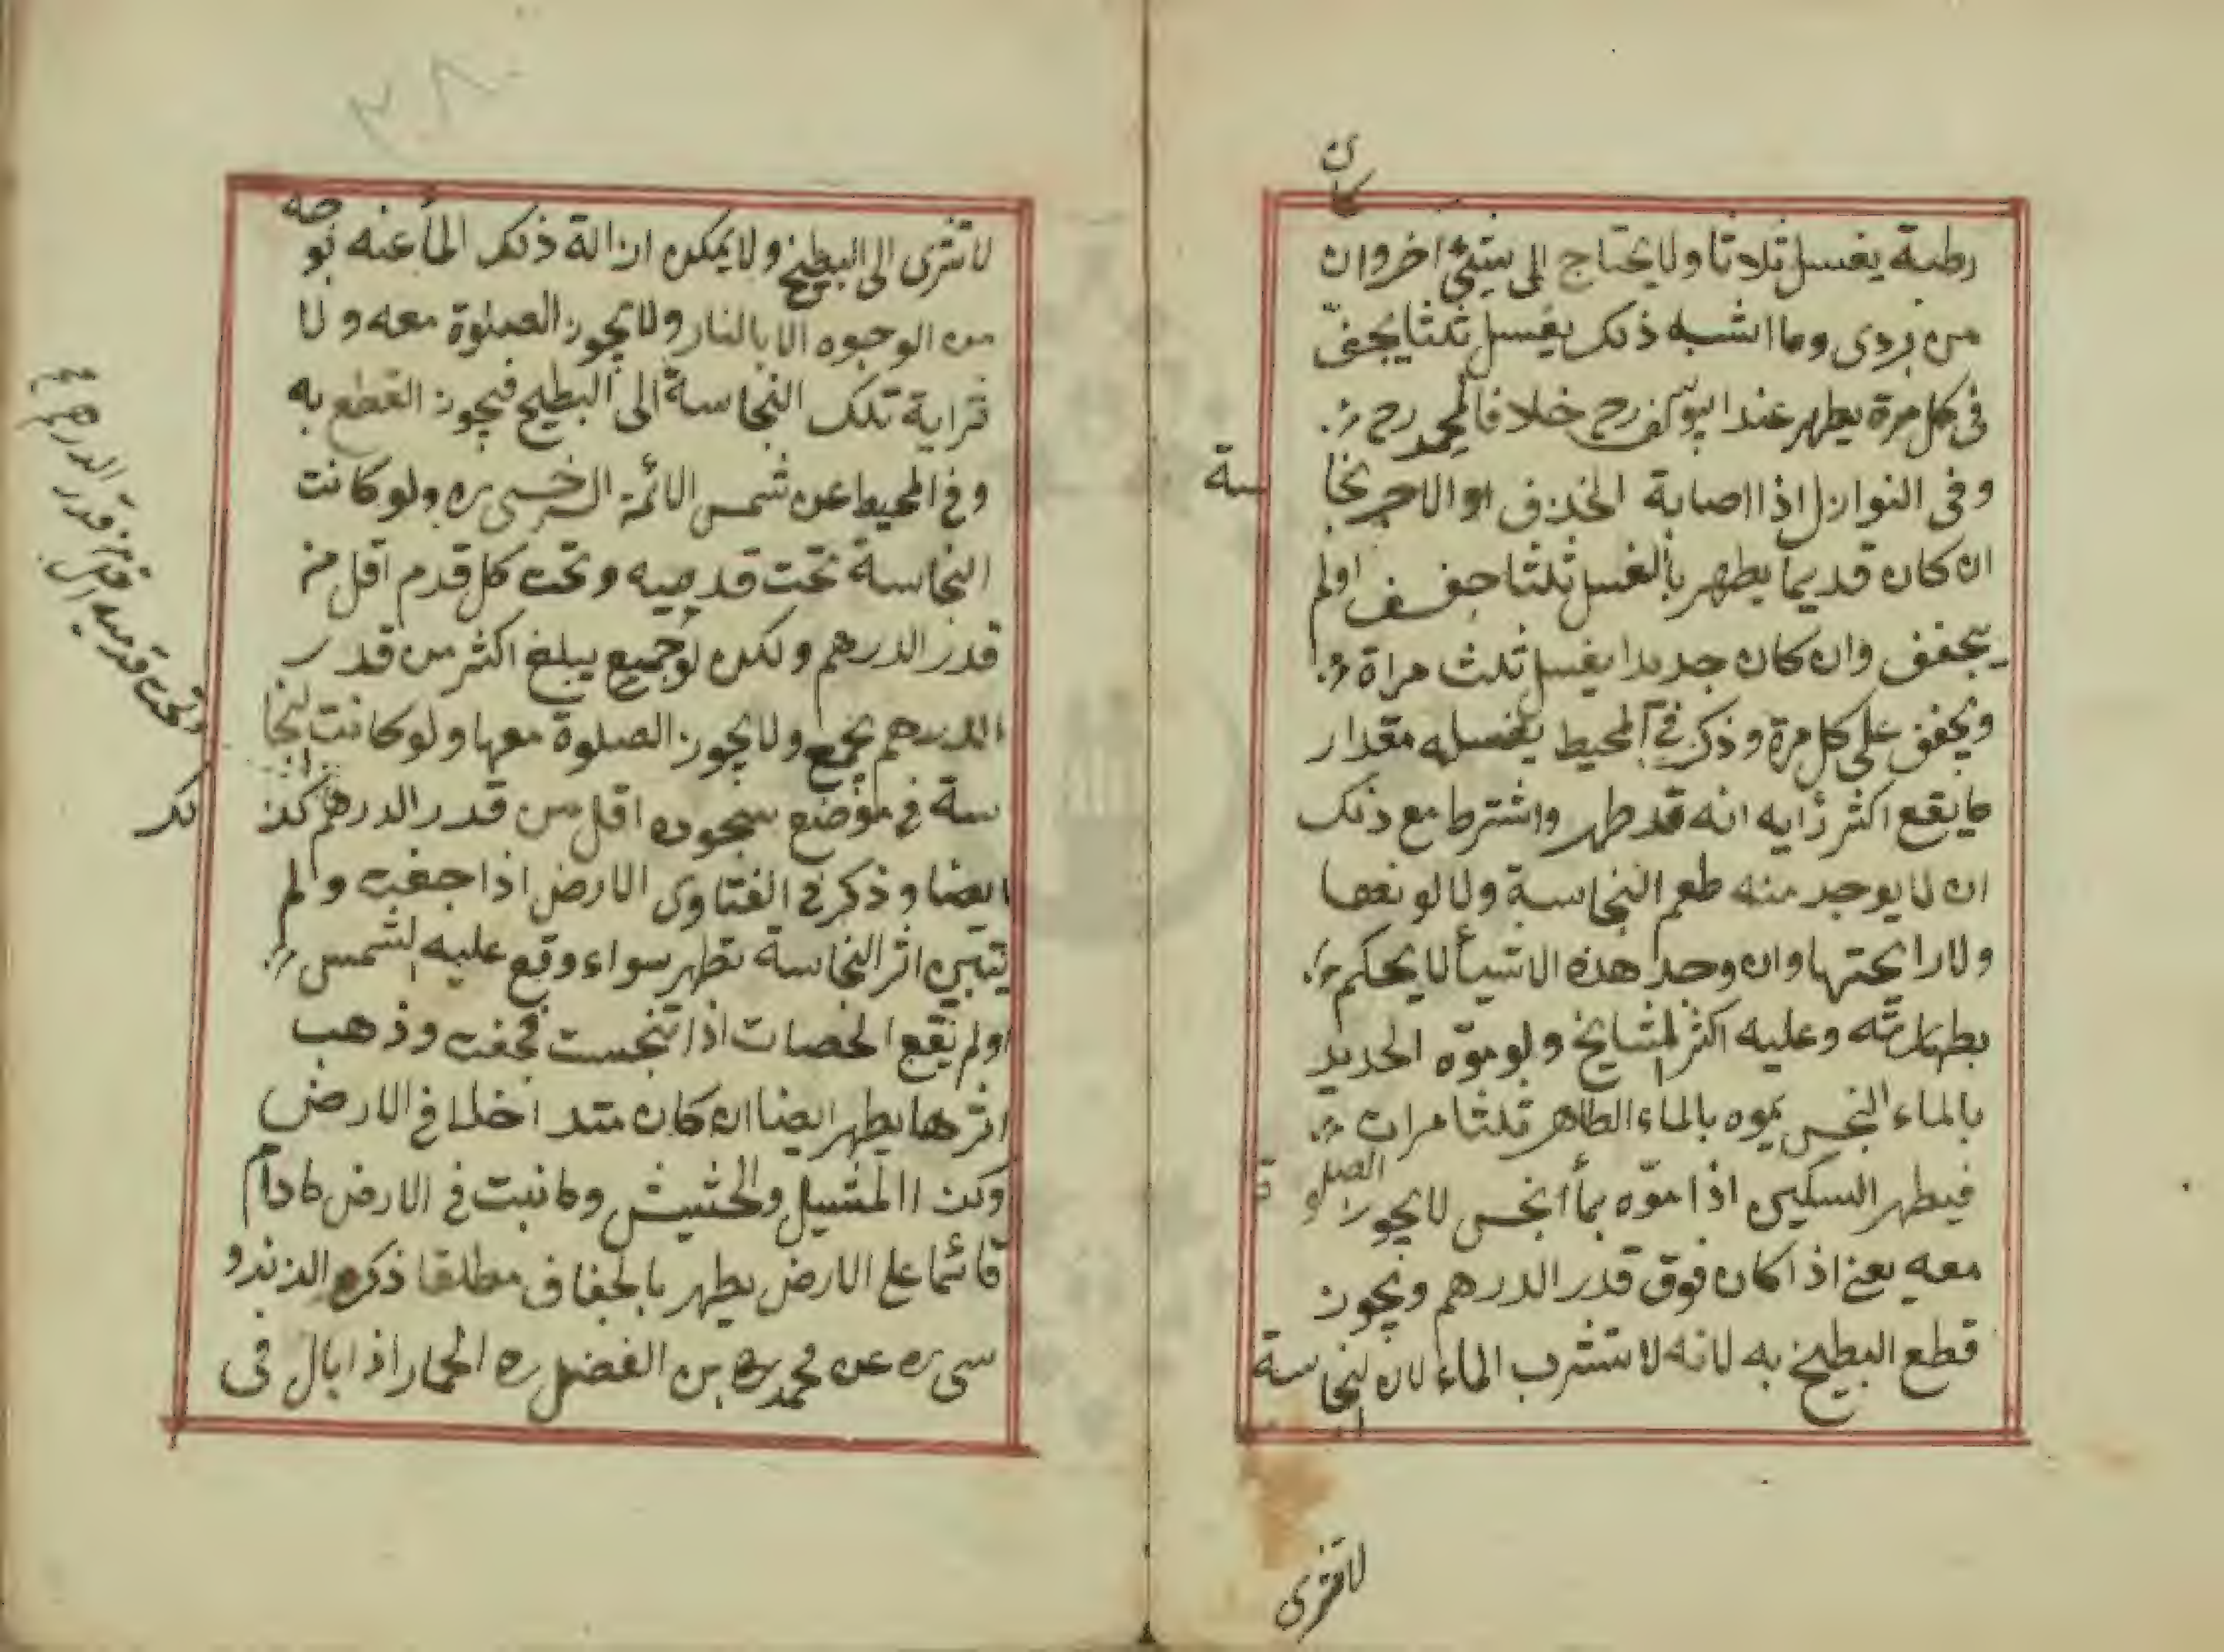 كان
رطبة يغسل ثلاثا ولا يحتاج الى شيئ اخر وان
من بردى وما اشبه ذلك يغسل ثلثا يجفّ
فى كل مرة يطهر عند ابيوسف رح خلافا لمحمد رح
وفى النوازل اذا اصابة الخذف او الاجر نجا
سة
ان كان قديما يطهر بالغسل ثلثا جفف اولم
يجفف وان كان جديدا يغسل ثلث مراة
ويجفف على كل مرة وذكر فى المحيط يغسله مقدار
ما يقع اكثر رأيه انه قد طهر واشترط مع ذلك
ان لا يوجد منه طعم النجاسة ولا لونعها
ولا رايحتها وان وجد هذه الاشيأ لا يحكم
بطهارته وعليه اكثر المشايخ ولو موّه الحديد
بالماء النجس يموه بالماء الطاهر ثلثا مرات
فيطهر السكين اذا موّه بمأ انجس لا يجوز الصلو
ة
معه يعنى اذا كان فوق قدر الدرهم ويجوز
قطع البطيخ به لانه لا تتشرب الماء لان النجاسة
لا تترى
٢٨٠
لا تترى الى البطيخ ولا يمكن ازالة ذلك المأ عنه بو
جه
من الوجوه الا بالنار ولا يجوز الصلوة معه ولا
تراية تلك النجاسة الى البطيخ فيجوز القطع به
وفى المحيط عن شمس الائمة السرخسى ره ولو كانت
النجاسة تحت قدميه وتحت كل قدم اقل من
قدر الدرهم ولكن لو جميع يبلغ اكثر من قدر
الدرهم يجمع ولا يجوز الصلوة معها ولو كانت النجا
سة فى موضع سجوده اقل من قدر الدرهم كذ
لك
ايضا وذكر فى الفتاوى الارض اذا جفت ولم
يتبين اثر النجاسة تطهر سواء وقع عليه الشمس
اولم يقع الحصات اذا تنجست فجفت وذهب
اثرها يطهر ايضا ان كان متداخلا فى الارض
وكذا الحشيش وما نبت فى الارض مادام
قائما على الارض يطهر بالجفاف مطلقا ذكره الزندو
سى ره عن محمد بن الفضل ره الحمار اذا بال فى
وتحت قدميه
قدر الدرهم